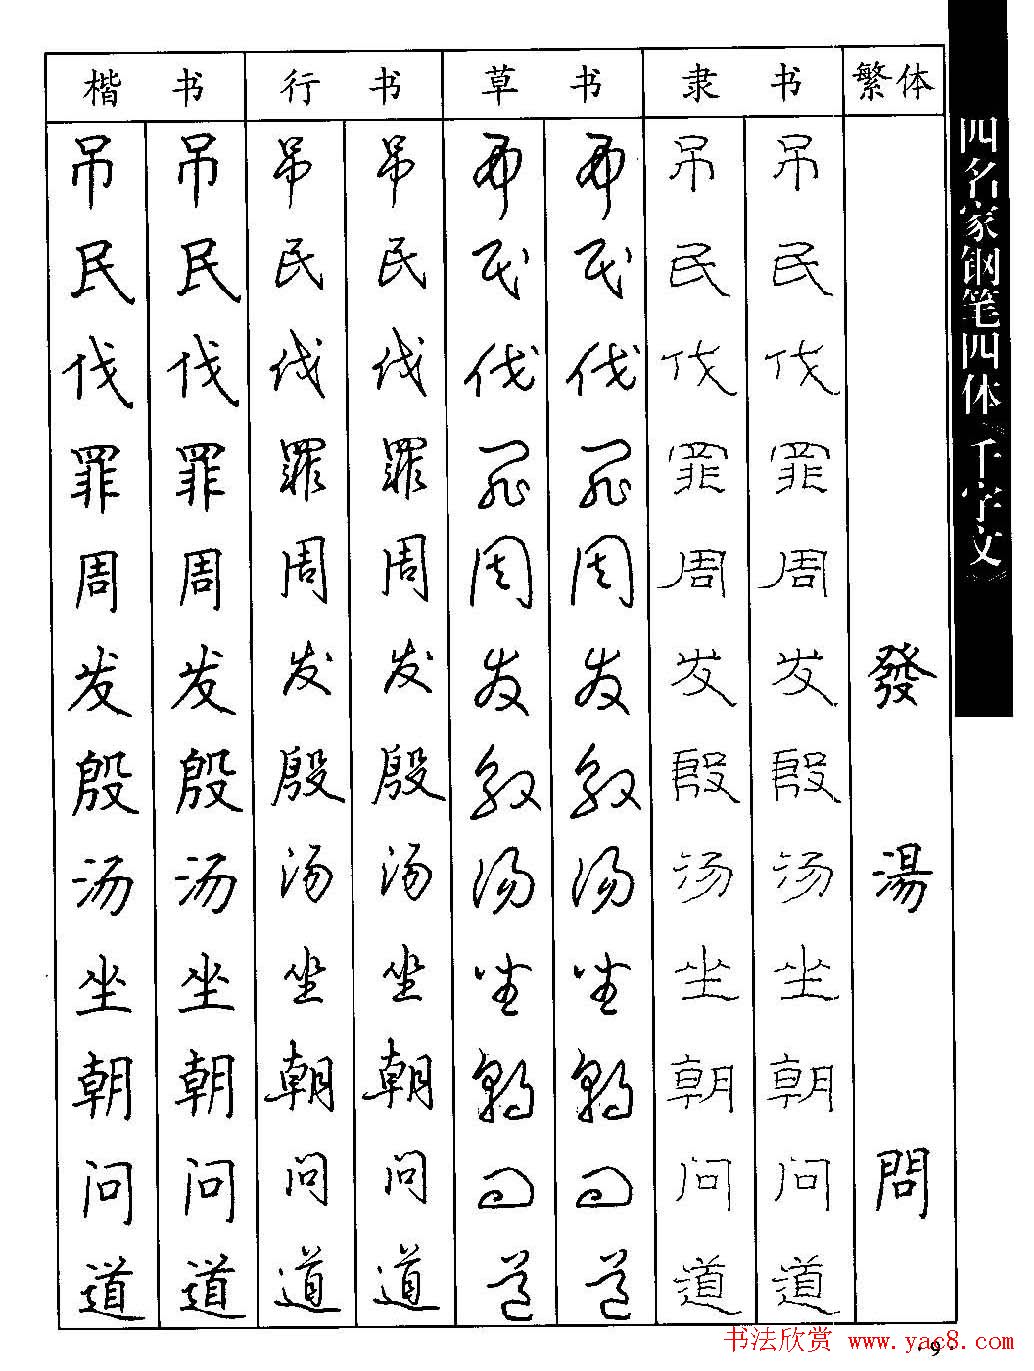 楷书 行书 草书 隶书 繁体
吊 吊 吊 吊 吊 吊 吊 吊
民 民 民 民 民 民 民 民
伐 伐 伐 伐 伐 伐 伐 伐
罪 罪 罪 罪 罪 罪 罪 罪
周 周 周 周 周 周 周 周
发 发 发 发 发 发 发 发 發
殷 殷 殷 殷 殷 殷 殷 殷
汤 汤 汤 汤 汤 汤 汤 汤 湯
坐 坐 坐 坐 坐 坐 坐 坐
朝 朝 朝 朝 朝 朝 朝 朝
问 问 问 问 问 问 问 问 問
道 道 道 道 道 道 道 道
四名家钢笔四体《千字文》
书法欣赏 www.yac8.com
·9·